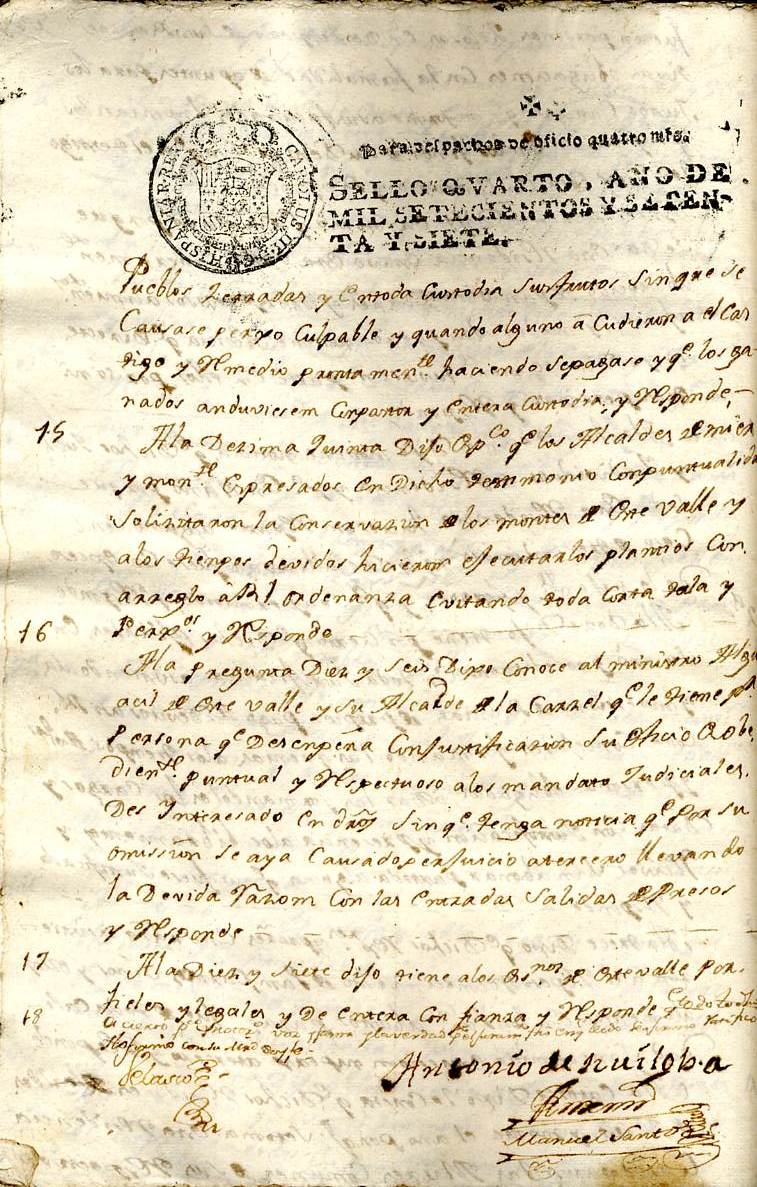 Para despachos de oficio quatro mrs.
SELLO QVARTO, AÑO DE
MIL SETECIENTOS Y SETEN-
TA Y SIETE.
CAROLUS III D G HISPANIAR REX
Pueblos Zerradas y Entoda Custodia Susfrutos Sin que se
Causase perxo Culpable y quando alguno a Cudieron a el Cas
tigo y Remedio prontamente haciendo Sepagase y qe. los ga-
nados anduviesem Conpastor y Entera Custodia, y Responde,
15
Ala Dezima quinta Dijo Qe los Alcaldes de
y monte Expresados En Dicho testimonio Conpuntualida
Solizitaron la Conservazion de los montes de Este Valle y
alos tienpos devidos hicieron ejecutarlos plantios Con
arreglo à Rl ordenanza Evitando toda Corta tala y
16
Perxos y Responde
Ala pregunta Diez y Seis Dixo Conoce al ministro Algu
acil de Este valle y su Alcaide de la Carzel qe le tiene pr
Persona qe Desenpeña Conjustificazion Su Oficio Obe
diente. puntual y Respectuoso alos mandato Judiciales.
Des Ynteresado En dros Sin qe. tenga noticia qe Por su
omission Se aya Causado perjuicio atercero llevando
la Devida Razom Con las Entradas Salidas de Presos
y Responde
17
Ala Diez y Siete dijo tiene alos Esnos de Este valle Por
18
fieles y legales y De Entera Confianza y Responde qe todo lo
y la verdad
lo firmo con su Mrd doy fe
Velasco
Antonio de Ruiloba
Antemi
Manuel Santos